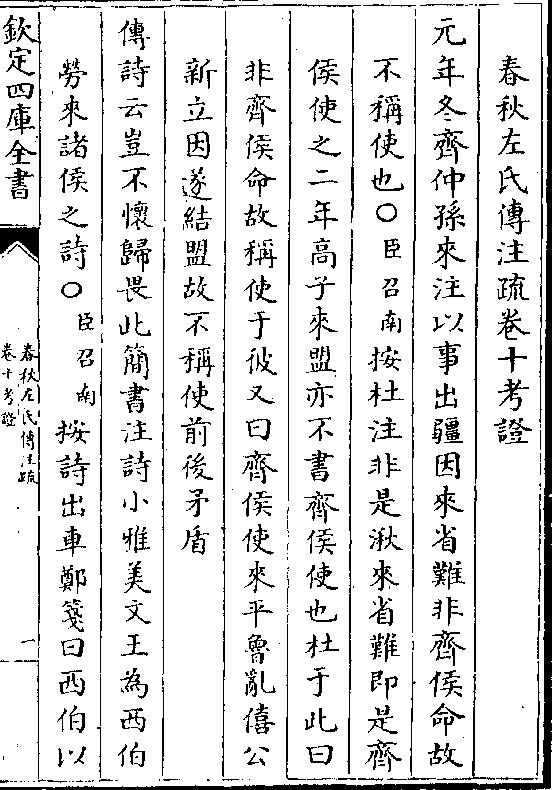 春秋左氏傳注疏卷十考證
元年冬齊仲孫來注以事出疆因來省難非齊侯命故
不稱使也〇臣召南按杜注非是湫來省難即是齊
侯使之二年高子來盟亦不書齊侯使也杜于此曰
非齊侯命故稱使于彼又曰齊侯使來平魯亂僖公
新立因遂結盟故不稱使前後矛盾
傳詩云豈不懷歸畏此簡書注詩小雅美文王為西伯
勞來諸侯之詩〇臣召南按詩出車鄭箋曰西伯以
欽定四庫全書
春秋左氏傳注疏
卷十考證
一